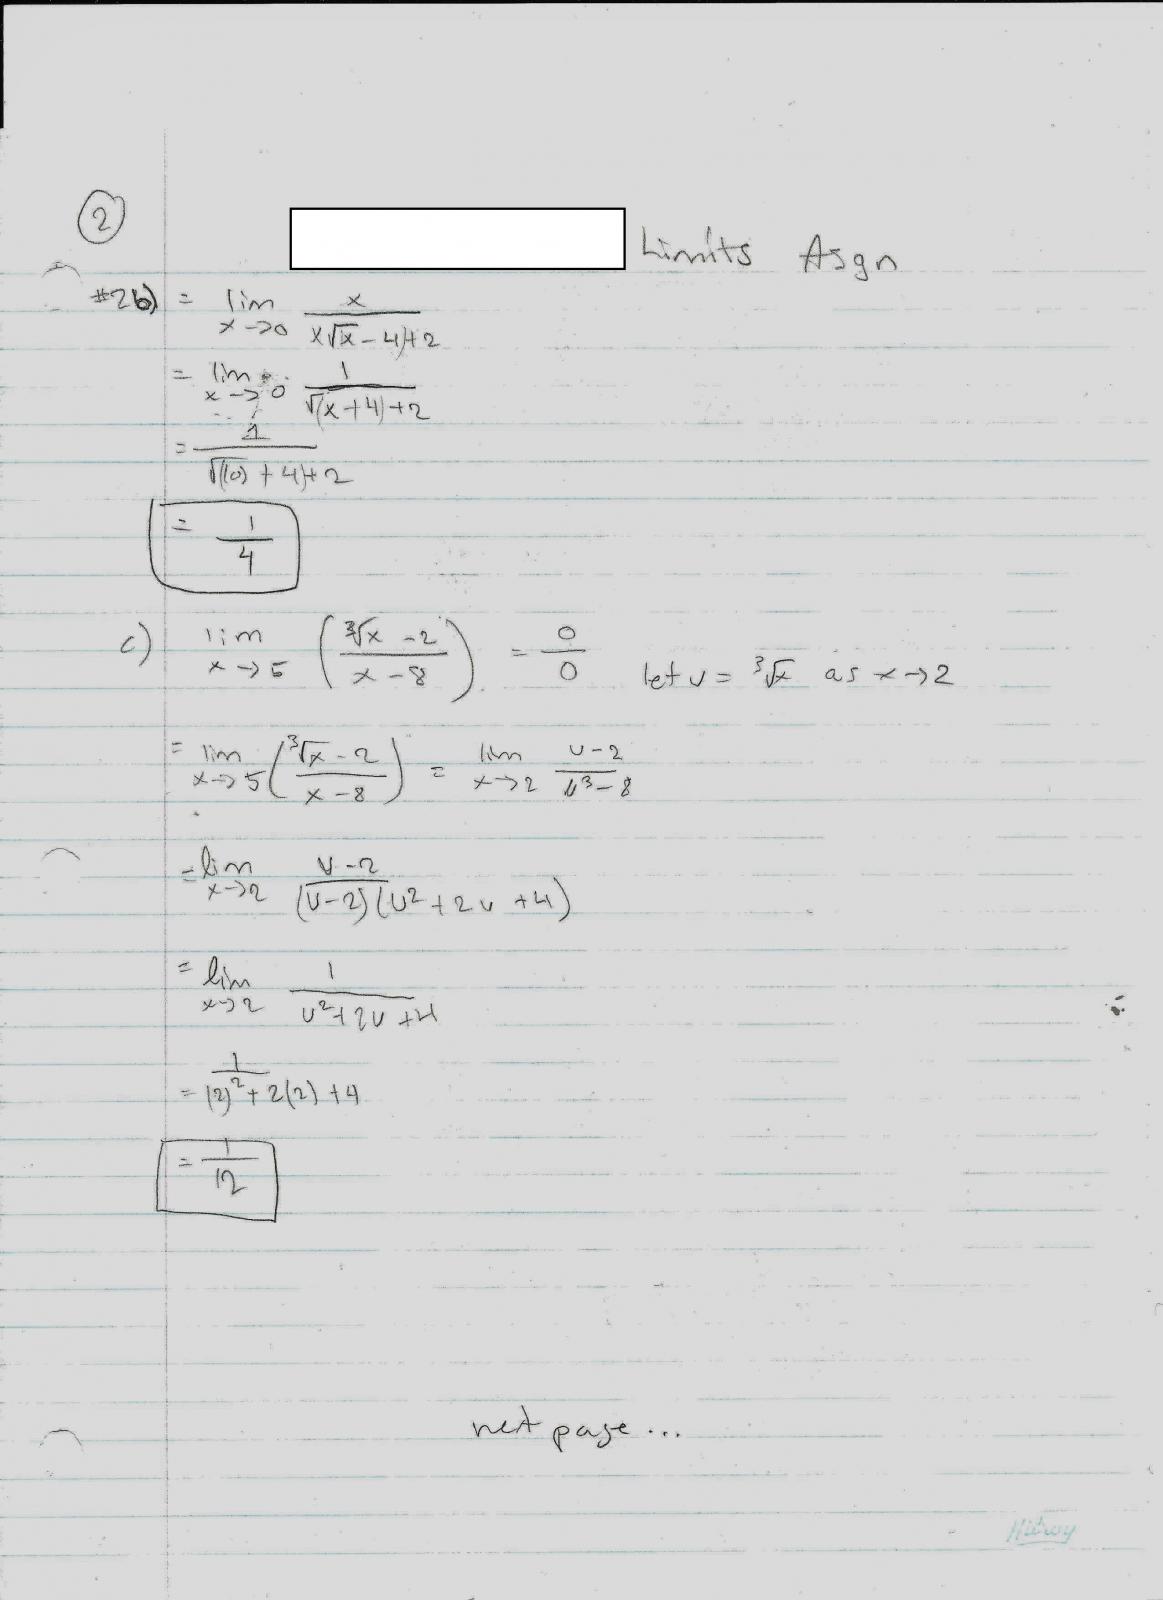 2
Limits Asgn
#2b) = lim x→0 x / x√x - 4)+2
= lim x→0 1 / √(x+4)+2
= 1 / √((0)+4)+2
= 1/4
c) lim x→5 (∛x - 2 / x - 8) = 0/0 let u = ∛x as x→2
= lim x→5 (∛x - 2 / x - 8) = lim x→2 u-2 / u³-8
= lim x→2 u-2 / (u-2)(u²+2u+4)
= lim x→2 1 / u²+2u+4
= 1 / (2)²+2(2)+4
= 1/12
next page...
Hilroy